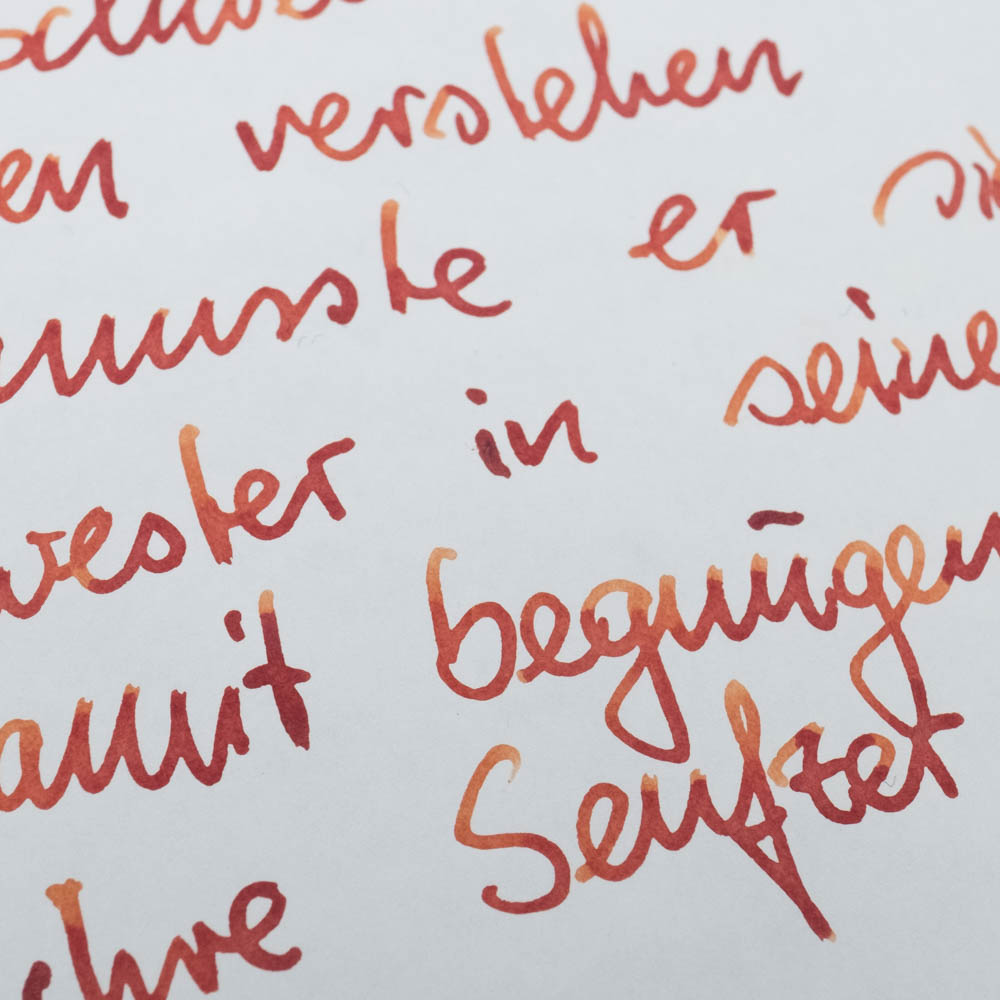 en verstehen
musste er si
wester in seine
amit begnügen
Seufzer
ihre